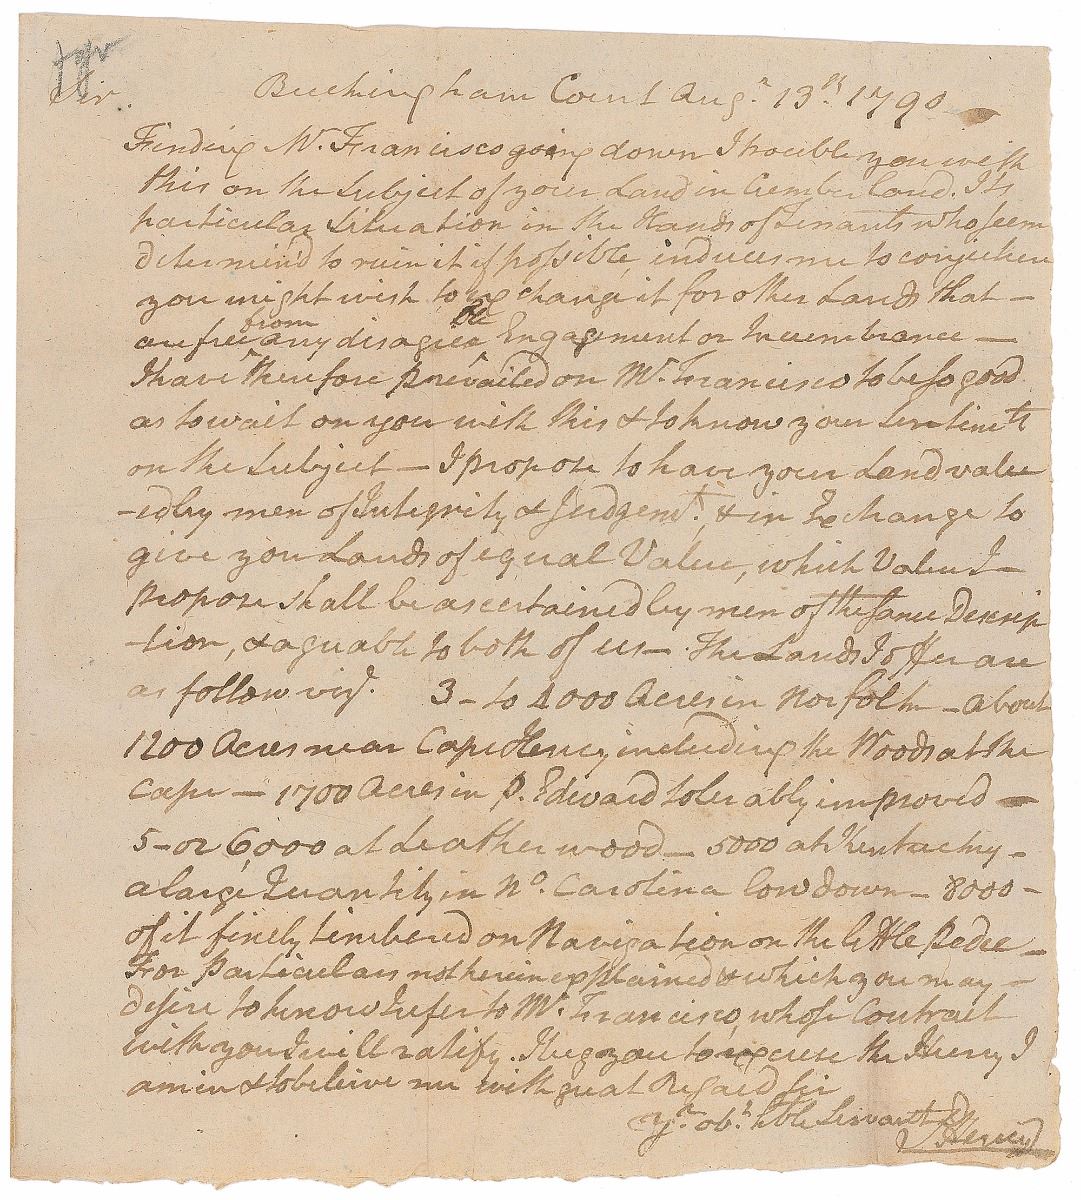 Sir. Buckingham Court Augt. 13th. 1790
Finding Mr. Francisco going down I trouble you with
this on the Subject of your Land in Cumberland. Its
particular Situation in the Hands of Tenants who seem
determin'd to ruin it if possible, induces me to conjecture
you might wish to exchange it for other Lands that —
are free from any disagreeable Engagement or Incumbrance —
I have therefore prevailed on Mr. Francisco to be so good
as to wait on you with this & to know your Sentimts
on the Subject — I propose to have your Land value
-ed by men of Integrity & Judgemt., & in Exchange to
give you Lands of equal Value, which Value I
propose shall be ascertained by men of the same Descrip
-tion, & agreable to both of us — The Lands I offer are
as follow viz. 3 - to 4000 Acres in Norfolk — about
1200 Acres near Cape Henry including the Woods at the
Cape — 1700 Acres in P. Edward tolerably improved —
5 - or 6,000 at Leatherwood — 5000 at Kentucky —
a large Quantity in No. Carolina low down — 8000 —
of it finely timbered on Navigation on the little Pedee —
For Particulars not herein explained & which you may —
desire to know I refer to Mr. Francisco, whose Contract
with you I will ratify. I beg you to excuse the Hurry I
am in & to beleive me with great Regard Sir
Yr. obt. hble Servant
P Henry